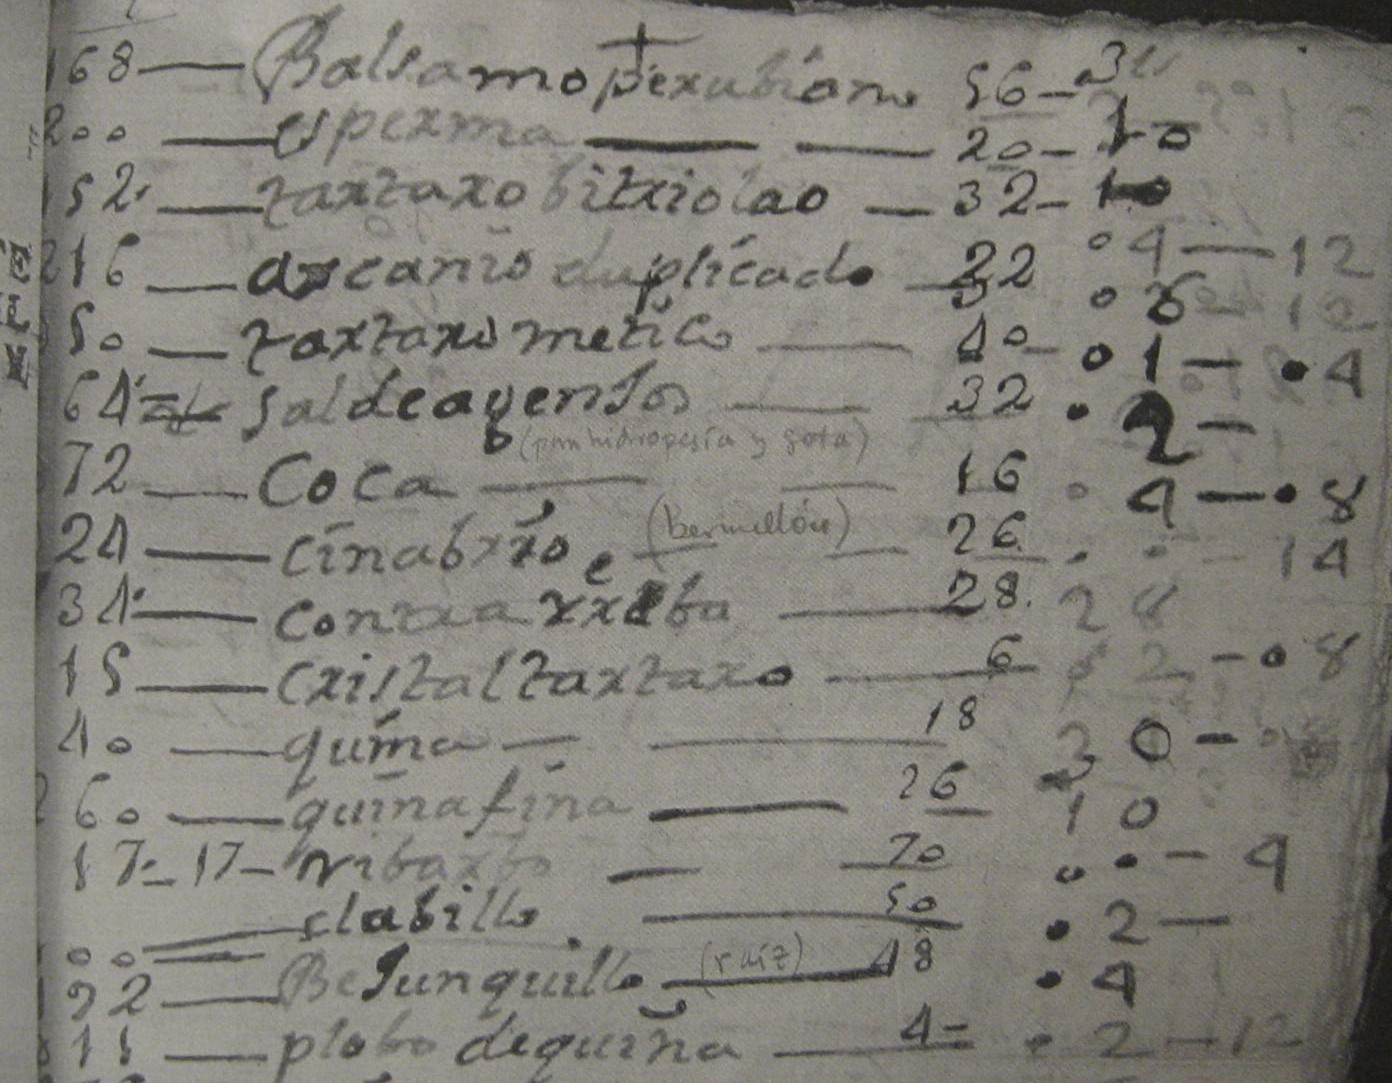 168 — Balsamo perubiano 56 —
200 — esperma — 20 — 10
152 — tartaro bitriolao — 32 — 10
216 — arcanio duplicado — 22 04 — 12
50 — tartaro metico — 40 — 01 — 04
64 — sal de agensos — 32 . 2 —
(para hidropesía y gota)
72 — Coca — 16 0 4 — 08
24 — cinabrio (bermellón) — 26 . . — 14
34 — contra rreba — 28. 28
15 — cristal tartaro — 6 52 — 08
40 — quina — 18 30 —
260 — quina fina — 26 10
17 — 17 — rribarbo — 70 . . — 4
— clabillo — 50 . 2 —
00
92 — Bejunquillo (raíz) — 48 . 4
811 — plobo de quina — 4 — . 2 — 12